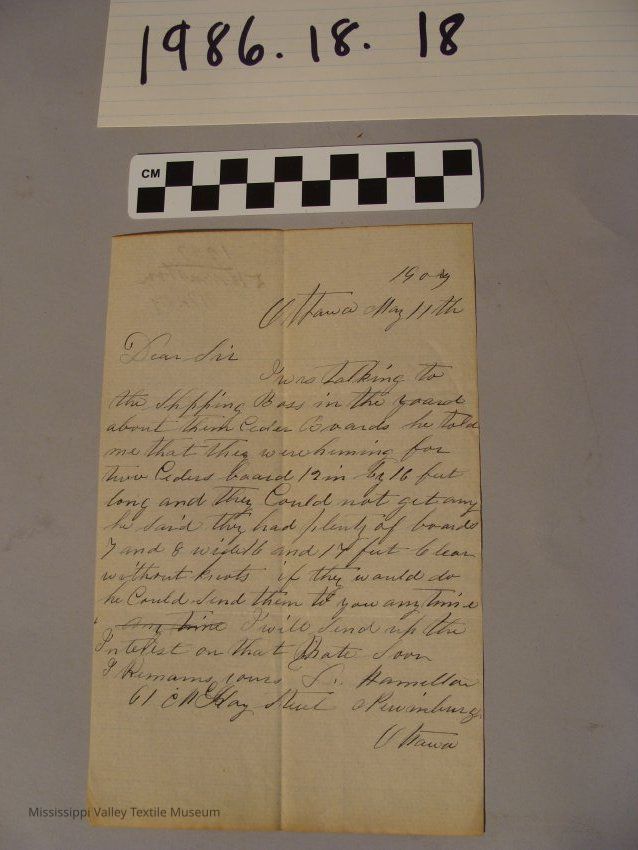 1986.18.18
CM
1909
Ottawa May 11th
Dear Sir
I was talking to
the Shpping Boss in the yard
about them Ceder Boards he told
me that they were huning for
two Ceders board 12 in by 16 feet
long and they Could not get any
he said they had plenty of boards
7 and 8 wide 16 and 17 feet Clear
without knots if they would do
he Could Send them to you any time
any time I will Send up the
Intrest on that Note Soon
I Remains yours Hamilton
61 McKay Street
Ottawa
Mississippi Valley Textile Museum